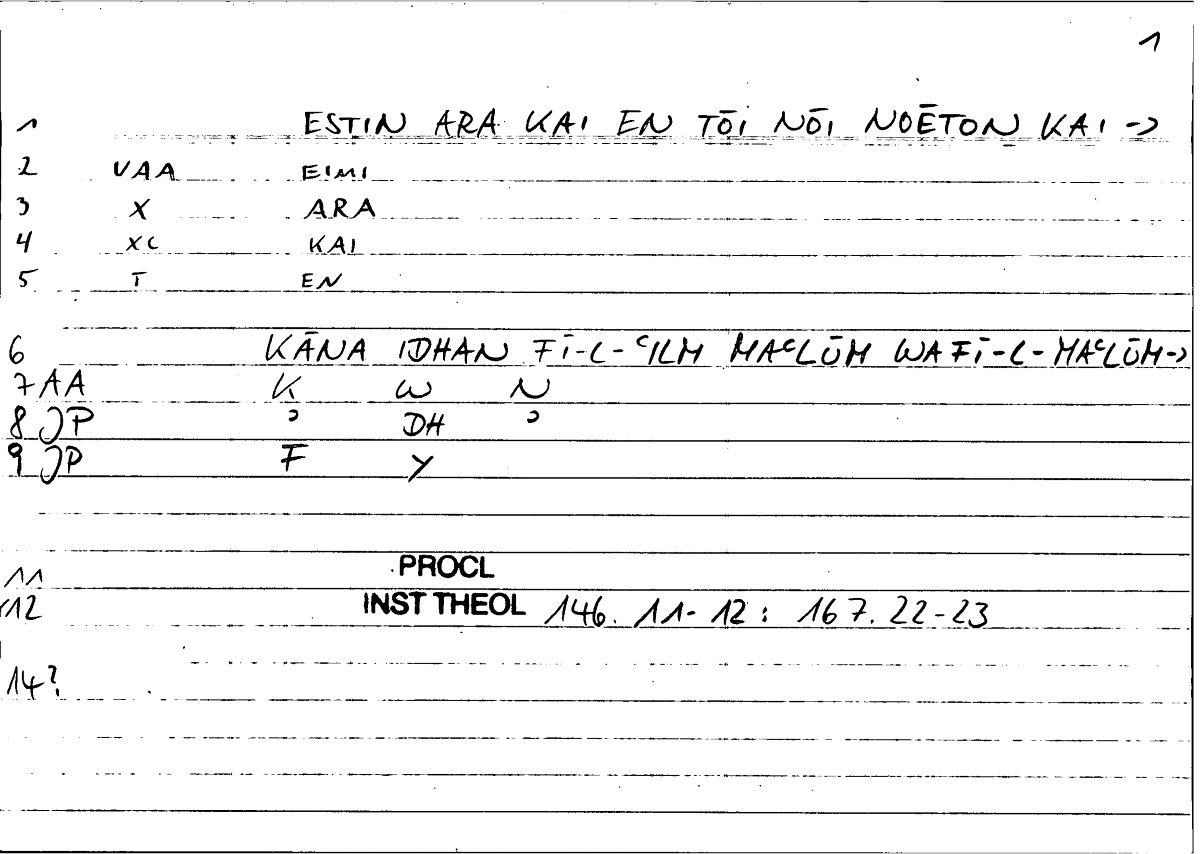 1
1 ESTIN ARA KAI EN TŌI NŌI NOĒTON KAI ->
2 VAA EIMI
3 X ARA
4 XC KAI
5 T EN
6 KĀNA IDHAN FĪ-L-ʿILM MAʿLŪM WA FĪ-L-MAʿLŪM->
7 AA K W N
8 JP ʾ DH ʾ
9 JP F Y
11 PROCL
12 INST THEOL 146. 11-12: 167. 22-23
14?